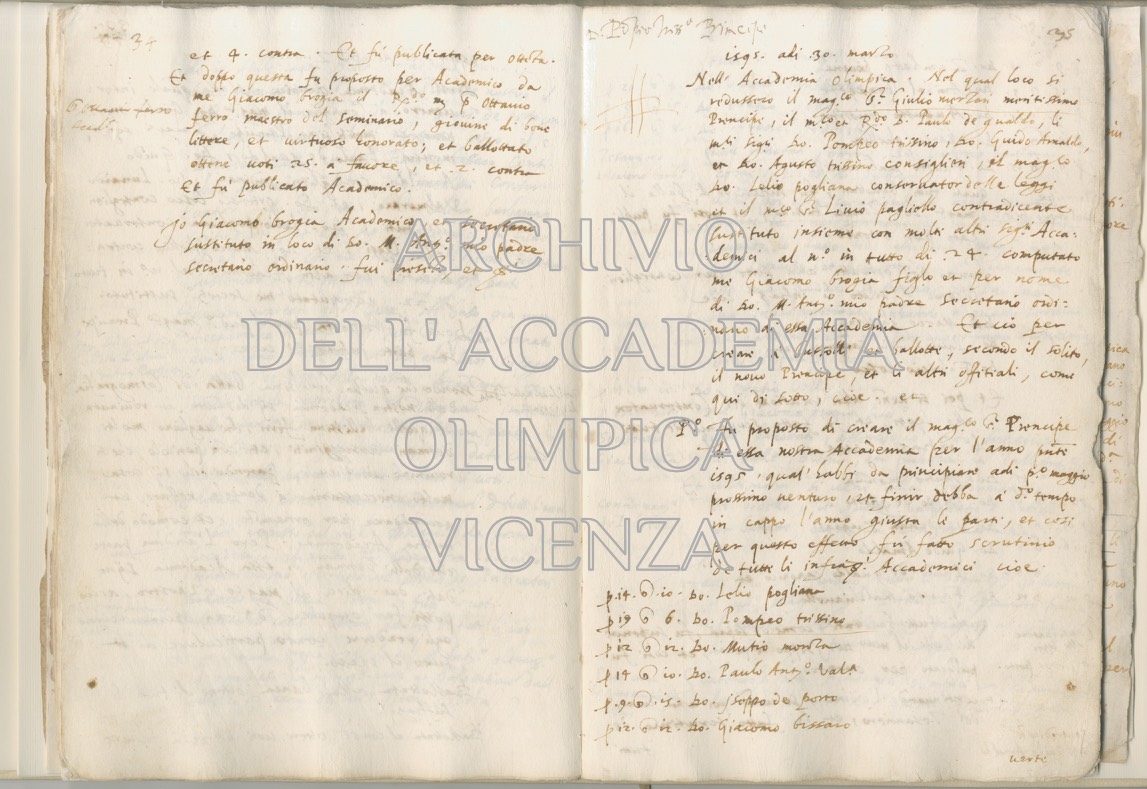 34
et 4. contra. Et fù publicata per ottēta.
Et doppo questa fu proposto per Academico da
me Giacomo brogia il Ottauio
ferro maestro del seminario, giouine di bone
littere, et uirtuoso honorato; et ballottato
ottene uoti 25. a fauore, et. 2. contra
Et fù publicato Academico.
Jo Giacomo brogia Academico et secretario
sustituto in loco di Do. M. Antº. mio padre
secretario ordinario. fui
Ottauio ferro
Prīncipe
1595. adi 30. marzo
35
Nell' Accademia Olimpica. Nel qual loco si
redussero il mag.co Giulio merzari meritissimo
Prencipe, il et R.do D. Paulo de gualdo, li
Do. Pompeo trissino, Do. Guido Arnaldo,
et Do. Agusto trissino consiglieri, il mag.co
Do. Lelio pogliana conseruator delle leggi
et il Liuio pagliello contradicente
sustituto insieme con molti altri sig.ri Acca-
demici al nº. in tutto di 24. computato
me Giacomo brogia figlo et per nome
di Do. M. Antº. mio padre Secretario ordi-
nario d'essa Accademia Et ciò per
creare a bussoli et ballotte, secondo il solito,
il nouo Prencipe, et li altri offitiali, come
qui di sotto, cioe. et
Pº. Fu proposto di creare il mag.co Prencipe
di essa nostra Accademia per l'anno pñte
1595, qual habbi da principiare adi pº. maggio
prossimo uenturo, et finir debba a dº. tempo
in cappo l'anno giusta le parti, et cosi
per questo effetto fù fatto scrutinio
de tutti li Accademici cioe.
p 14. 10. Do. Lelio pogliana
p 19 6. Do. Pompeo trissino
p 12 12. Do. Mutio
p 14 10. Do. Paulo Antº. Val.a
p. 9. 15. Do. Jseppo de porto
p 12. 12. Do. Giacomo bissaro
uerte
ARCHIVIO
DELL'ACCADEMIA
OLIMPICA
VICENZA